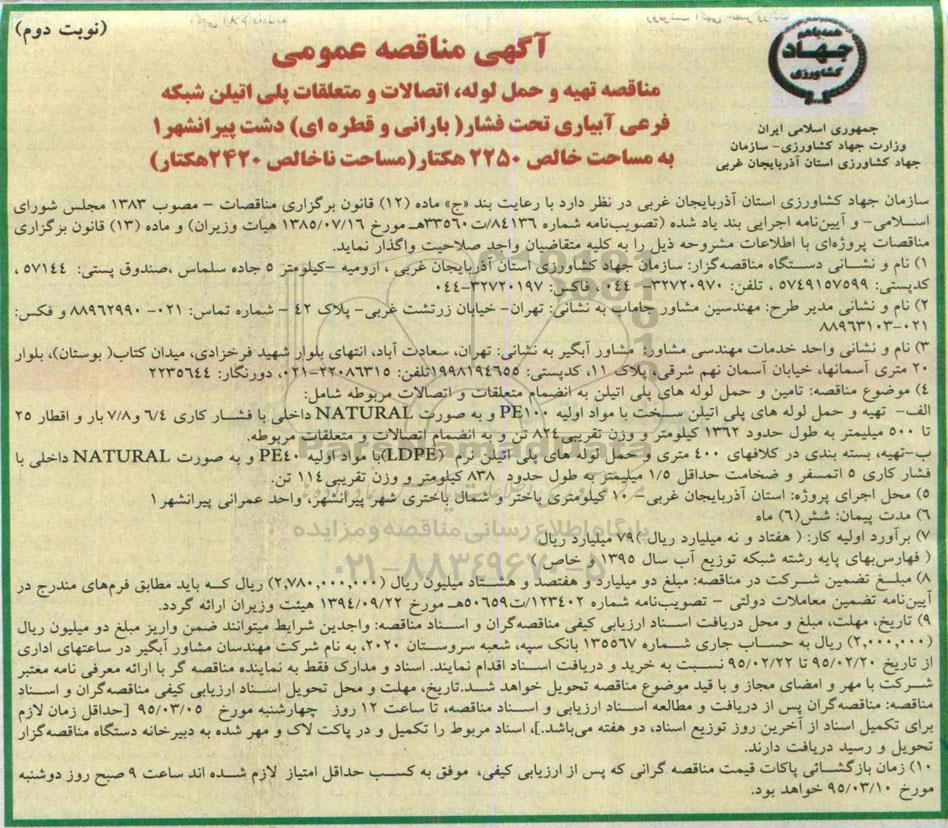 (نوبت دوم)
همه با هم
جهاد
کشاورزی
جمهوری اسلامی ایران
وزارت جهاد کشاورزی- سازمان
جهاد کشاورزی استان آذربایجان غربی
آگهی مناقصه عمومی
مناقصه تهیه و حمل لوله، اتصالات و متعلقات پلی اتیلن شبکه
فرعی آبیاری تحت فشار( بارانی و قطره ای) دشت پیرانشهر۱
به مساحت خالص ۲۲۵۰ هکتار(مساحت ناخالص ۲۴۲۰هکتار)
سازمان جهاد کشاورزی استان آذربایجان غربی در نظر دارد با رعایت بند «ج» ماده (۱۲) قانون برگزاری مناقصات – مصوب ۱۳۸۳ مجلس شورای
اسلامی- و آیین‌نامه اجرایی بند یاد شده (تصویب‌نامه شماره ۸۴۱۳۶/ت۳۳۵۶۰هـ مورخ ۱۳۸۵/۰۷/۱۶ هیات وزیران) و ماده (۱۳) قانون برگزاری
مناقصات پروژه‌ای با اطلاعات مشروحه ذیل را به کلیه متقاضیان واجد صلاحیت واگذار نماید.
۱) نام و نشانی دستگاه مناقصه‌گزار: سازمان جهاد کشاورزی استان آذربایجان غربی ، ارومیه –کیلومتر ۵ جاده سلماس ،صندوق پستی: ۵۷۱۴۴ ،
کدپستی: ۵۷۴۹۱۵۷۵۹۹ ، تلفن: ۳۲۷۲۰۹۷۰- ۰۴۴ ، فاکس: ۳۲۷۲۰۱۹۷-۰۴۴
۲) نام و نشانی مدیر طرح: مهندسین مشاور جاماب به نشانی: تهران- خیابان زرتشت غربی- پلاک ۴۲ – شماره تماس: ۰۲۱- ۸۸۹۶۲۹۹۰ و فکس:
۰۲۱-۸۸۹۶۳۱۰۳
۳) نام و نشانی واحد خدمات مهندسی مشاور: مشاور آبگیر به نشانی: تهران، سعادت آباد، انتهای بلوار شهید فرخزادی، میدان کتاب( بوستان)، بلوار
۲۰ متری آسمانها، خیابان آسمان نهم شرقی، پلاک ۱۱، کدپستی: ۱۹۹۸۱۹۴۶۵۵تلفن: ۲۲۰۸۶۳۱۵-۰۲۱، دورنگار: ۲۲۳۵۶۴۴
۴) موضوع مناقصه: تامین و حمل لوله های پلی اتیلن به انضمام متعلقات و اتصالات مربوطه شامل:
الف- تهیه و حمل لوله های پلی اتیلن سخت با مواد اولیه PE۱۰۰ و به صورت NATURAL داخلی با فشار کاری ۶/۴ و ۷/۸ بار و اقطار ۲۵
تا ۵۰۰ میلیمتر به طول حدود ۱۳۶۲ کیلومتر و وزن تقریبی۸۲۴ تن و به انضمام اتصالات و متعلقات مربوطه.
ب-تهیه، بسته بندی در کلافهای ۴۰۰ متری و حمل لوله های پلی اتیلن نرم (LDPE)با مواد اولیه PE۴۰ و به صورت NATURAL داخلی با
فشار کاری ۵ اتمسفر و ضخامت حداقل ۱/۵ میلیمتر به طول حدود ۸۳۸ کیلومتر و وزن تقریبی۱۱۴ تن.
۵) محل اجرای پروژه: استان آذربایجان غربی- ۱۰ کیلومتری باختر و شمال باختری شهر پیرانشهر، واحد عمرانی پیرانشهر۱
۶) مدت پیمان: شش(۶) ماه
۷) برآورد اولیه کار: ( هفتاد و نه میلیارد ریال )۷۹ میلیارد ریال
( فهارس‌بهای پایه رشته شبکه توزیع آب سال ۱۳۹۵و خاص)
۸) مبلغ تضمین شرکت در مناقصه: مبلغ دو میلیارد و هفتصد و هشتاد میلیون ریال (۲,۷۸۰,۰۰۰,۰۰۰) ریال که باید مطابق فرم‌های مندرج در
آیین‌نامه تضمین معاملات دولتی – تصویب‌نامه شماره ۱۲۳۴۰۲/ت۵۰۶۵۹هـ مورخ ۱۳۹۴/۰۹/۲۲ هیئت وزیران ارائه گردد.
۹) تاریخ، مهلت، مبلغ و محل دریافت اسناد ارزیابی کیفی مناقصه‌گران و اسناد مناقصه: واجدین شرایط میتوانند ضمن واریز مبلغ دو میلیون ریال
(۲,۰۰۰,۰۰۰) ریال به حساب جاری شماره ۱۳۵۵۶۷ بانک سپه، شعبه سروستان ۲۰۲۰، به نام شرکت مهندسان مشاور آبگیر در ساعتهای اداری
از تاریخ ۹۵/۰۲/۲۰ تا ۹۵/۰۲/۲۲ نسبت به خرید و دریافت اسناد اقدام نمایند. اسناد و مدارک فقط به نماینده مناقصه گر با ارائه معرفی نامه معتبر
شرکت با مهر و امضای مجاز و با قید موضوع مناقصه تحویل خواهد شد.تاریخ، مهلت و محل تحویل اسناد ارزیابی کیفی مناقصه‌گران و اسناد
مناقصه: مناقصه‌گران پس از دریافت و مطالعه اسناد ارزیابی و اسناد مناقصه، تا ساعت ۱۲ روز چهارشنبه مورخ ۹۵/۰۳/۰۵ [حداقل زمان لازم
برای تکمیل اسناد از آخرین روز توزیع اسناد، دو هفته می‌باشد.]، اسناد مربوط را تکمیل و در پاکت لاک و مهر شده به دبیرخانه دستگاه مناقصه‌گزار
تحویل و رسید دریافت دارند.
۱۰) زمان بازگشائی پاکات قیمت مناقصه گرانی که پس از ارزیابی کیفی، موفق به کسب حداقل امتیاز لازم شده اند ساعت ۹ صبح روز دوشنبه
مورخ ۹۵/۰۳/۱۰ خواهد بود.
پایگاه اطلاع رسانی مناقصه و مزایده
۰۲۱-۸۸۳۴۹۶۷۰-۵